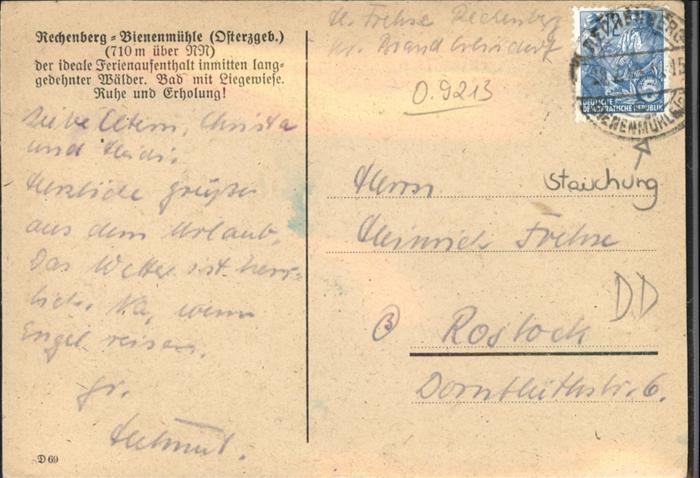 Rechenberg-Bienenmühle (Osterzgeb.)
(710 m über NN)
der ideale Ferienaufenthalt inmitten lang-
gedehnter Wälder. Bad mit Liegewiese.
Ruhe und Erholung!
Liebe Eltern, Christa
und Heidi.
Herzliche Grüße
aus dem Urlaub.
Das Wetter ist herr-
lich. Na, wenn
Engel reisen.
Gr.
Helmut.
D 69
H. Frehse Rechenberg
Kr. Brand Erbisdorf
0.9213
DEUTSCHE
DEMOKRATISCHE REPUBLIK
BIENENMÜHLE
Stauchung
Herrn
Heinrich Frehse
DD
Rostock
Dornblüthstr. 6.